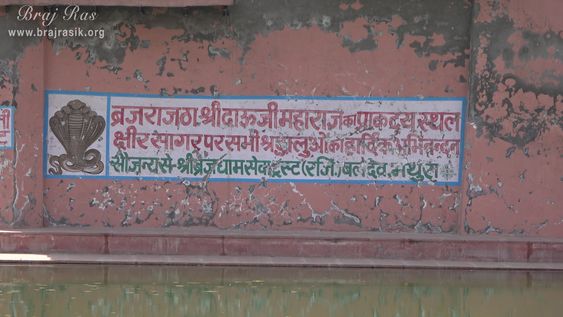 Braj Ras
www.brajrasik.org
ब्रजराजठा. श्री दाऊजी महाराज के पाकट्य स्थल
क्षीर सागर पर सभी श्रद्धालुओं का हार्दिक अभिनन्दन
सौजन्य से- श्री ब्रजधाम सेवा ट्रस्ट (रजि.) बलदेव, मथुरा